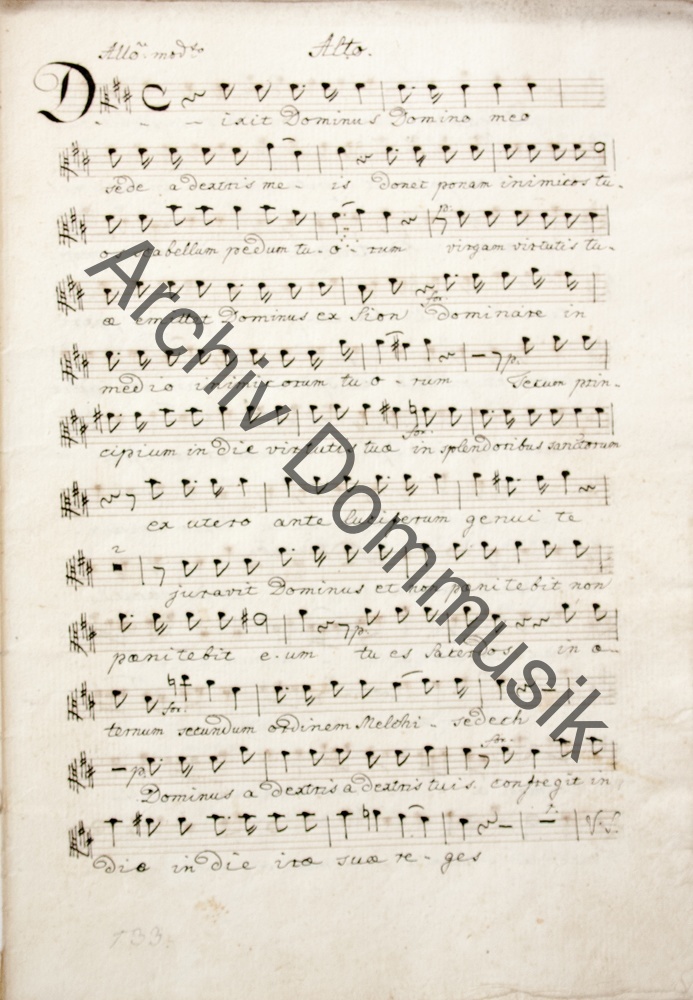 Allo: modto Alto.
Dixit Dominus Domino meo
sede a dextris me- is donec ponam inimicos tu-
os scabellum pedum tu- o- rum virgam virtutis tu-
æ emittet Dominus ex Sion dominare in
for.
medio inimicorum tu o- rum Tecum prin-
p.
cipium in die virtutis tuæ in splendoribus sanctorum
for:
ex utero ante luciferum genui te
2
juravit Dominus et non pœnitebit non
pœnitebit e- um tu es Sacerdos in æ-
p.
ternum secundum ordinem Melchi- sedech
for:
Dominus a dextris a dextris tuis. confregit in
p. for:
die in die iræ suæ re- ges
V. S.
133.
Archiv Dommusik